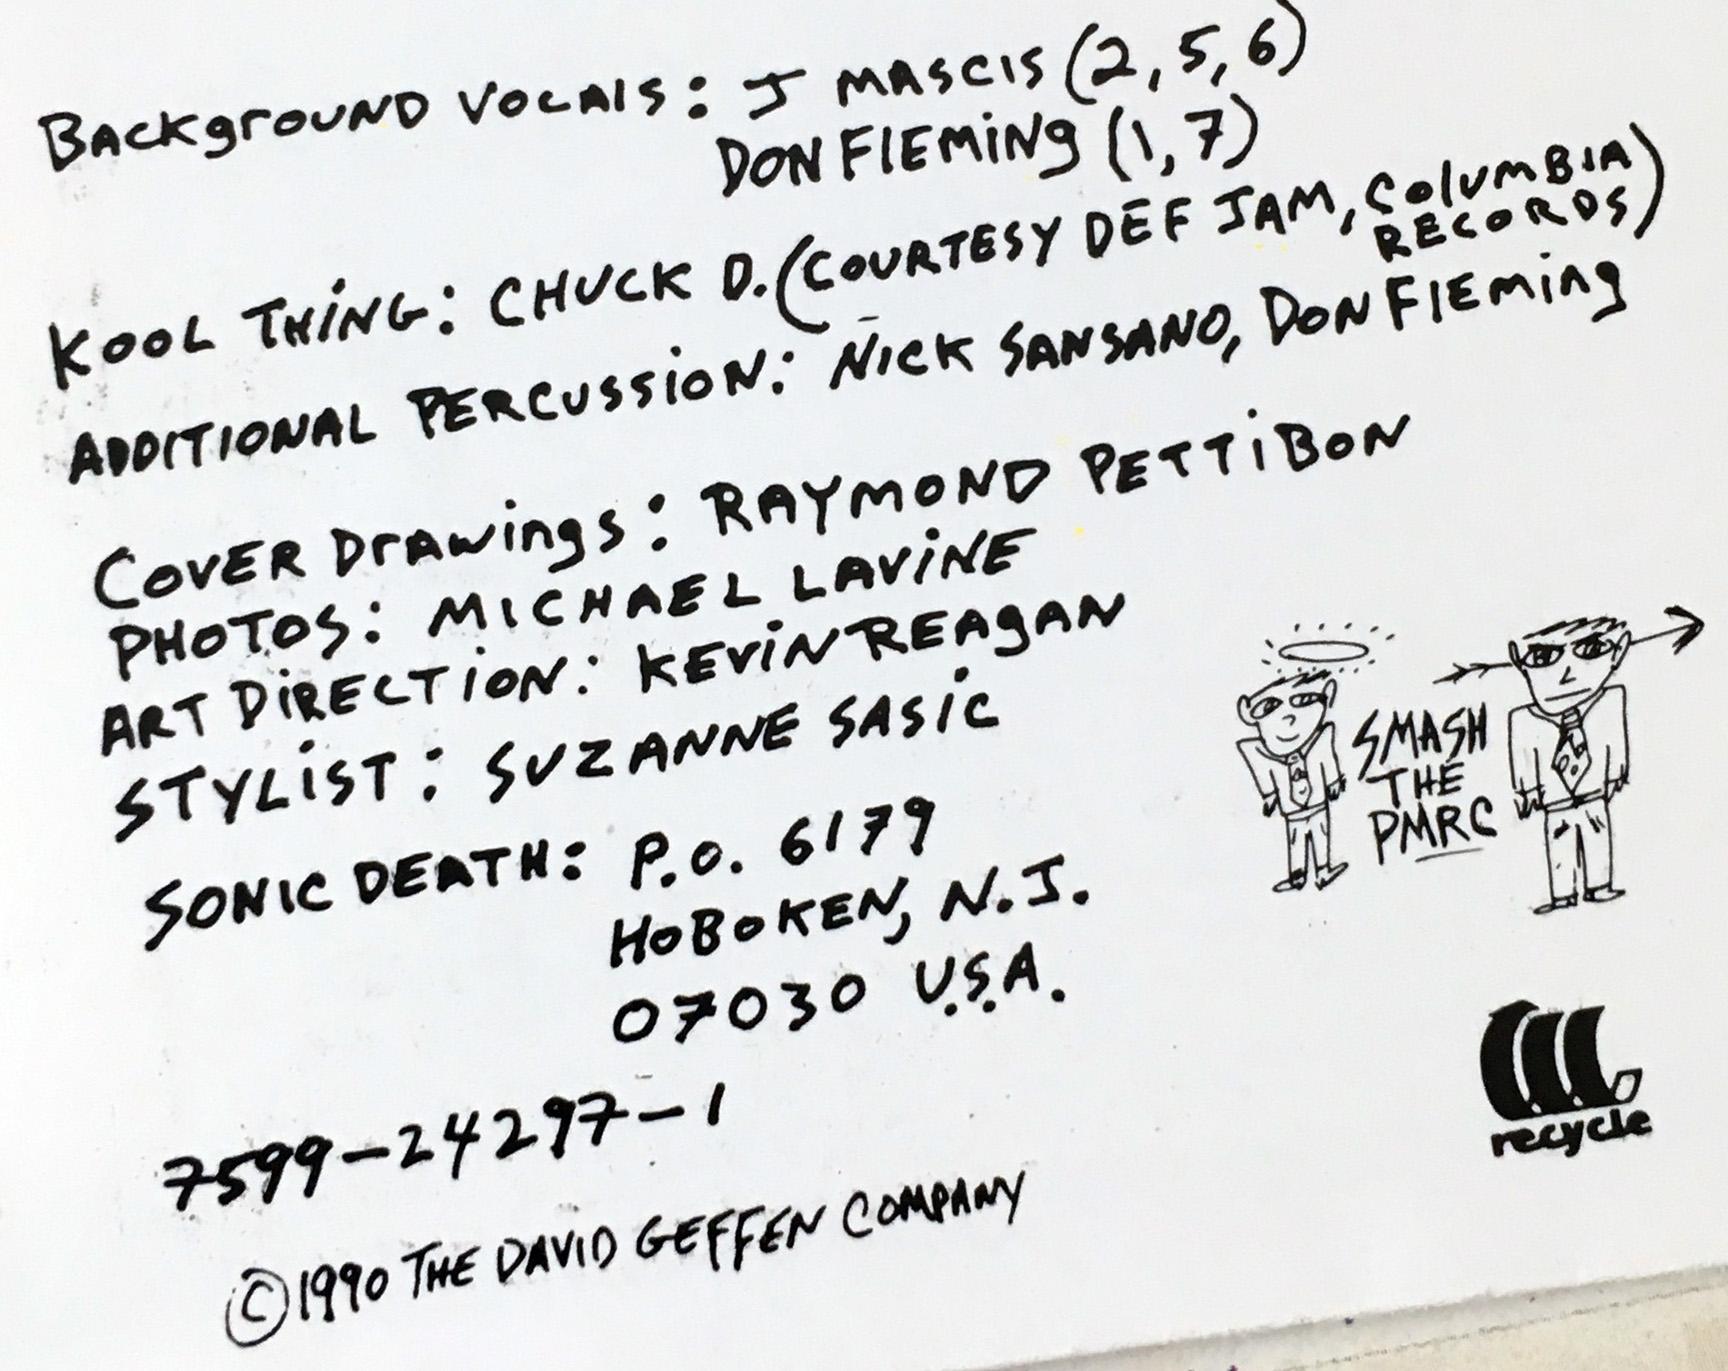 BACKgrOUND VOCAlS: J MASCIS (2, 5, 6)
DON FlEMiNg (1, 7)
KOOL THiNG: CHUCK D. (COURTESY DEF JAM, COlUMBIA
RECORDS)
ADDITIONAL PERCUSSiON: NICK SANSANO, DON FlEming
COVER DrAwings: RAYMOND PETTiBON
PHOTOS: MICHAEL LAViNE
ART DiRECTiON: KEViN REAgAN
STYLiST: SUZANNE SASiC
SONIC DEATH: P.O. 6179
HOBOKEN, N.J.
07030 U.S.A.
SMASH
THE
PMRC
7599-24297-1
©1990 THE DAVID GEFFEN COMPANY
recycle